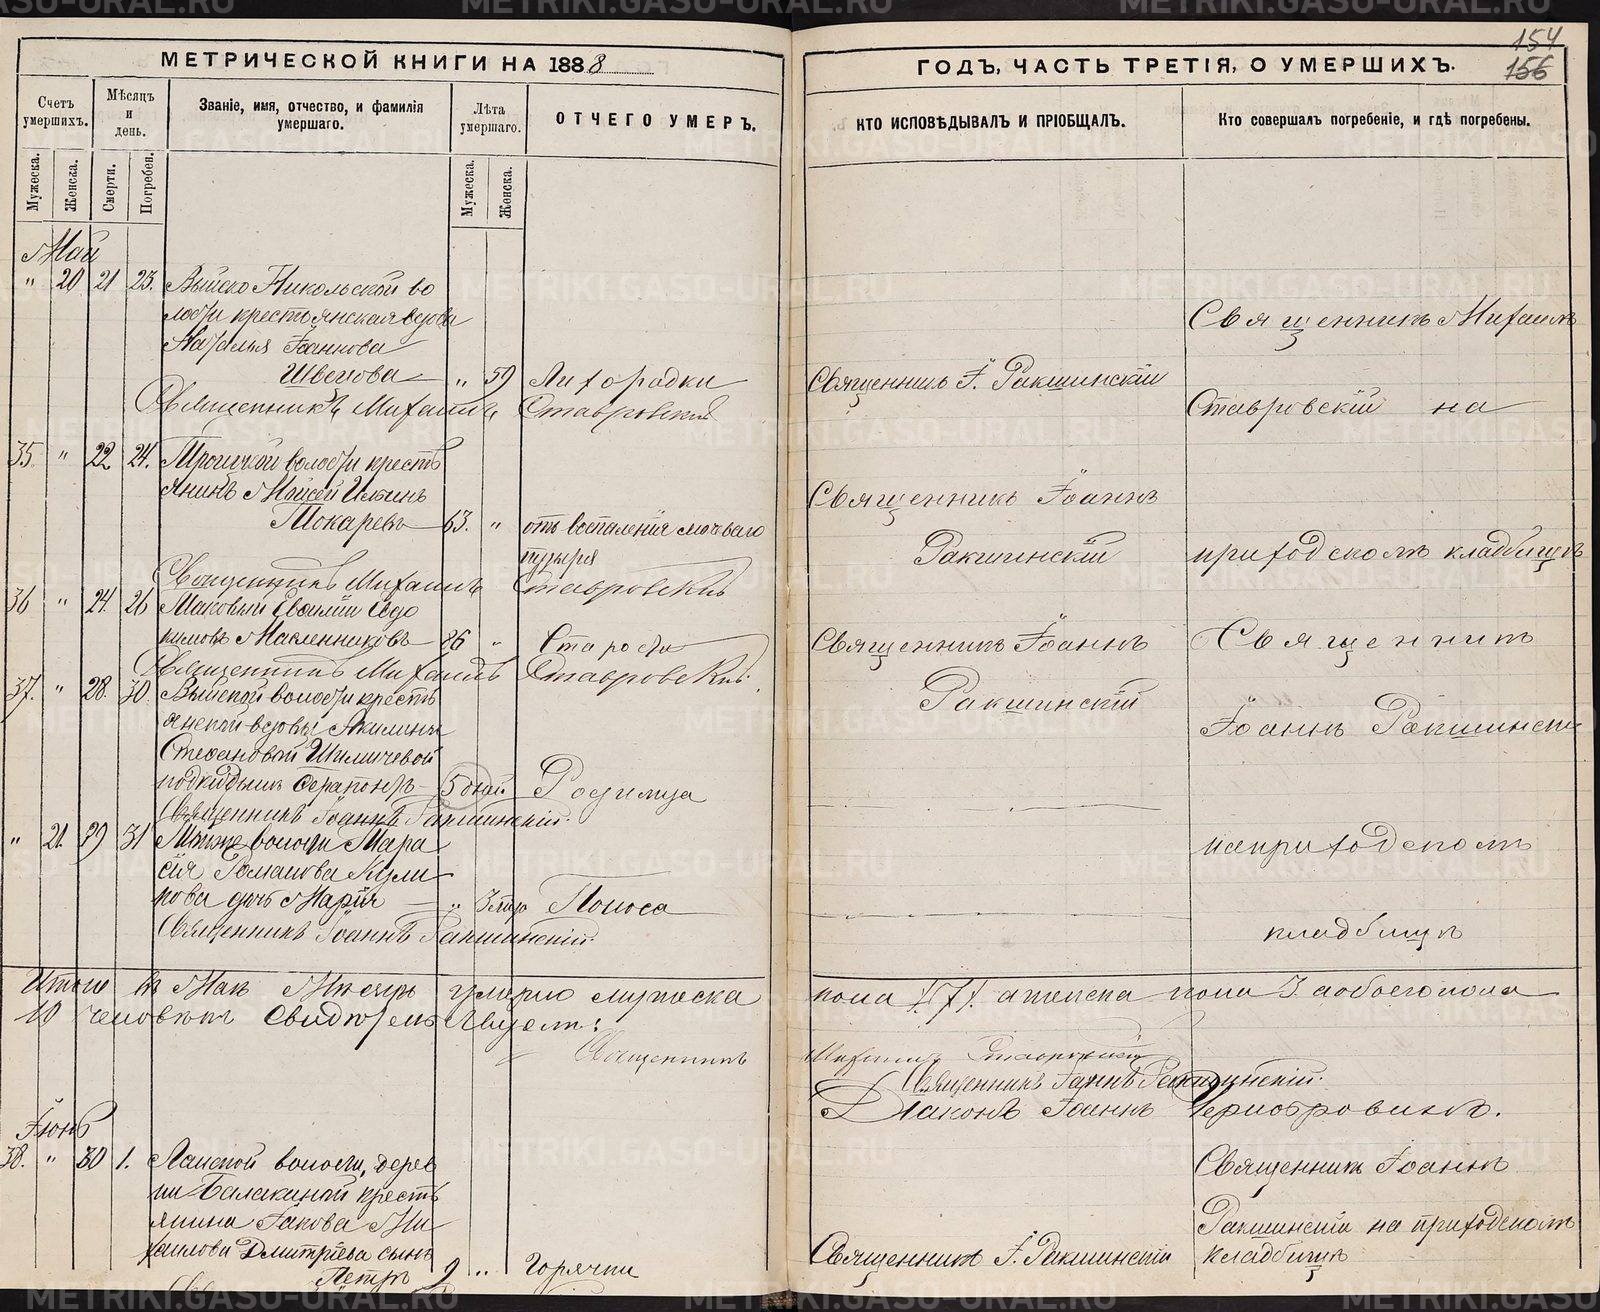 МЕТРИЧЕСКОЙ КНИГИ НА 1888
Счетъ умершихъ.
Мѣсяцъ и день.
Званіе, имя, отчество, и фамилія умершаго.
Лѣта умершаго.
ОТЧЕГО УМЕРЪ.
Мужеска.
Женска.
Смерти.
Погребен.
Мужеска.
Женска.
Май
" 20 21 23. Выйско Никольской во
лости крестьянская вдова
Наталья Іоаннова
Швецова " 59 Лихорадки
Священникъ Михаилъ Ставровскій
35. " 22 24. Троицкой волости кресть
янинъ Мойсей Ильинъ
Токаревъ 63. " отъ воспаленія мочеваго
пузыря
Священникъ Михаилъ Ставровскій
36 " 24. 26 Василій Евдо
кимовъ Масленниковъ 86 " Старости
Священникъ Михаилъ Ставровскій.
37. " 28. 30. Выйской волости кресть
янской вдовы Акилины
Стефановой
подкидышъ Серапіонъ 5 дней Родимца
Священникъ Іоаннъ Ракшинскій.
" 21. 29 31 волости
Романова Кули
кова дочь Марія " Поноса
Священникъ Іоаннъ Ракшинскій.
Итого въ Маѣ Мѣсяцѣ умерло мужеска
10 человѣкъ Свидѣтельствуемъ:
Священникъ
Іюнь
38. " 30 1. Лайской волости, дерев
ни Балакиной кресть
янина Іакова Ми
хаилова Дмитріева сынъ
Петръ 2 " Горячки
154
156
ГОДЪ, ЧАСТЬ ТРЕТІЯ, О УМЕРШИХЪ.
КТО ИСПОВѢДЫВАЛЪ И ПРІОБЩАЛЪ.
Кто совершалъ погребеніе, и гдѣ погребены.
Священникъ Михаилъ
Священникъ І. Ракшинскій
Ставровскій на
Священникъ Іоаннъ
Ракшинскій приходскомъ кладбищѣ
Священникъ Іоаннъ Священникъ
Ракшинскій
Іоаннъ Ракшинскій
на приходскомъ
кладбищѣ
пола 7. а женска пола 3. а обоего пола
Михаилъ Ставровскій
Священникъ Іоаннъ Ракшинскій.
Діаконъ Іоаннъ
Священникъ Іоаннъ
Ракшинскій на приходскомъ
Священникъ І. Ракшинскій кладбищѣ
METRIKI.GASO-URAL.RU